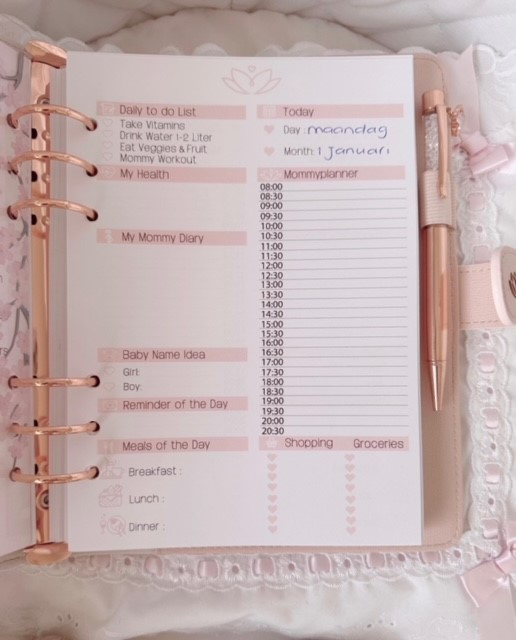 Daily to do List
Take Vitamins
Drink Water 1-2 Liter
Eat Veggies & Fruit
Mommy Workout
My Health
My Mommy Diary
Baby Name Idea
Girl:
Boy:
Reminder of the Day
Meals of the Day
Breakfast :
Lunch :
Dinner :
Today
Day : maandag
Month: 1 Januari
Mommyplanner
08:00
08:30
09:00
09:30
10:00
10:30
11:00
11:30
12:00
12:30
13:00
13:30
14:00
14:30
15:00
15:30
16:00
16:30
17:00
17:30
18:00
18:30
19:00
19:30
20:00
20:30
Shopping Groceries